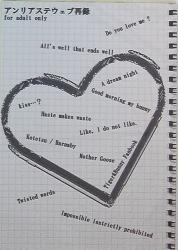 アンリアステウェブ再録
for adult only
Do you love me ?
All's well that ends well
A dream night
Good morning my honey
kiss…?
Haste makes waste
Like, I do not like.
Kotetsu / Barnaby
Mother Goose
Tiger&Bunny Fanbook
Twisted words
Impossible isstrictly prohibited